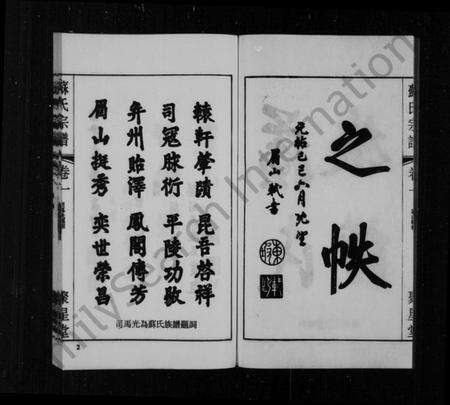 蘇氏宗譜
卷一
聚星堂
之帙
元祐己巳六月既望
眉山軾書
轅軒肇蹟 昆吾啓祥
司寇脉衍 平陵功敷
并州貽澤 鳳閣傳芳
眉山挺秀 奕世榮昌
司馬光為蘇氏族譜題詞
蘇氏宗譜
卷一
聚星堂
2